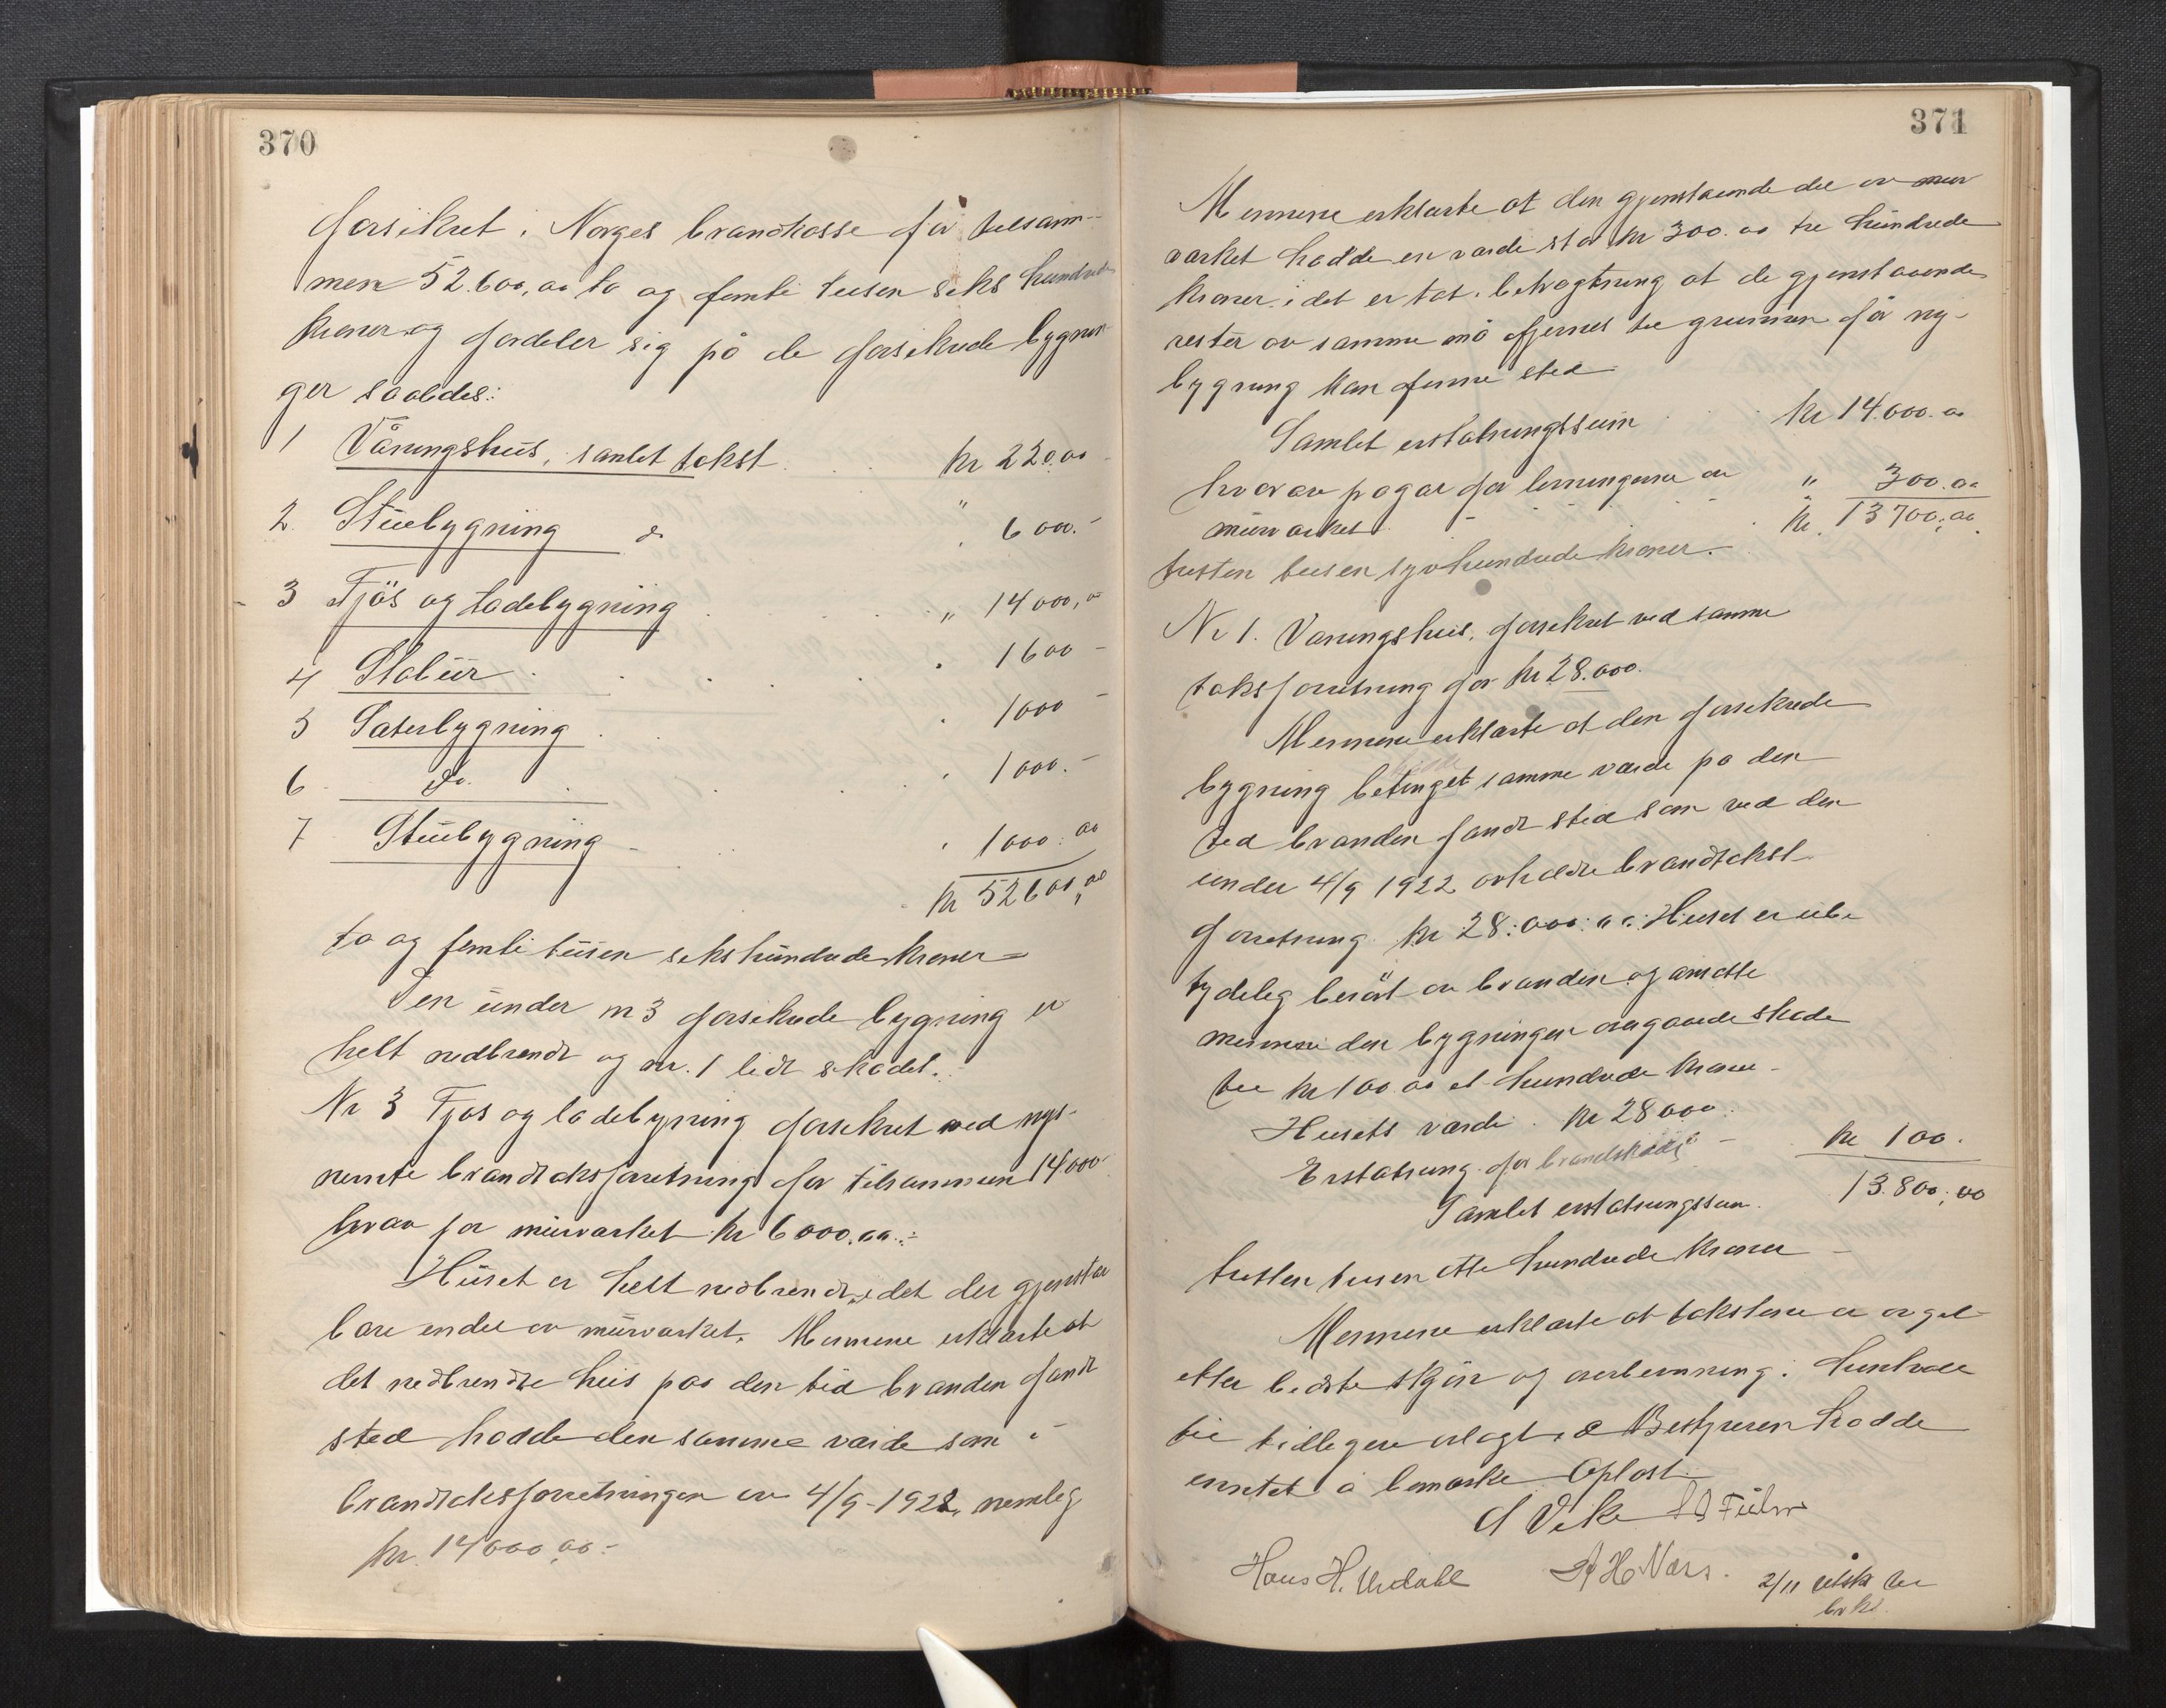 370
forsikret i Norges brandkasse for tilsam-
men 52.600,00 to og femti tusen seks hundrede
kroner og fordeler sig på de forsikrede bygnin-
ger saaledes:
1 Våningshus, samlet takst . . . kr 22000
2. Stuebygning do " 6000.-
3 Fjös og ladebygning . . . " 14000,00
4 Stabur . . . . 1600 -
5 Sæterbygning . . . 1000 -
6 do. . . . . 1000.-
7 Stuebygning - . . . 1000.00
kr 52600,00
to og femti tusen sekshundrede kroner =
Den under nr 3 forsikrede bygning er
helt nedbrendt og nr. 1 lidt skadet.
Nr 3 Fjös og ladebygning forsikret ved nys-
nemte brandtaksforretning for tilsammen 14.000
hvav for murverket kr 6000.00.-
Huset er helt nedbrendt, idet der gjenstaar
bare endel av murverket. Mennene erklærte at
det nedbrendte hus paa den tid branden fandt
sted hadde den samme værde som i
brandtaksforretningen av 4/9-1922, nemleg
kr. 14000,00.-
371
Mennene erklærte at den gjenstaaende del av mur
værket hadde en værdi stor kr 300.00 tre hundrede
kroner, idet er tat i betragtning at de gjenstaaende
rester av samme må fjernes til grunnen før ny-
bygning kan finne sted
Samlet erstatningssum . . kr 14.000.00
hvorav pågår for levningerne av " 300.00
murværket . - . . . kr. 13700,00
tretten tusen syvhundrede kroner.-
Nr 1. Våningshus, forsikret ved samme
taksforretning for kr 28.000.
Mennene erklærte at den forsikrede
bygning betinget samme værde på den
tid branden fandt sted som ved den
under 4/9 1922 avholdte brandtakst
forretning kr 28.000.00. Huset er ube
tydeleg berört av branden og ansatte
mennene den bygningen overgaaede skade
til kr 100.00 et hundrede krone -
Husets værde . kr 28000.
Erstatning for brandskade - kr 100.
Samlet erstatningssum. 13.800,00
tretten tusen otte hundrede kroner -
Mennene erklærte at takstene er avgit
etter bedste skjön og overbevisning.
tidligere avlagt. Bestyreren hadde
intet å bemærke. Oplæst.
Hans H. Urdahl
2/11 utskr til
br.k.